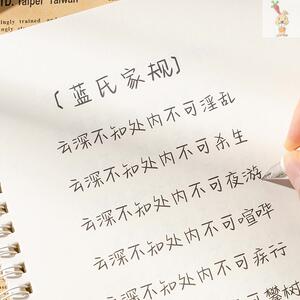 TD. Taipei Taiwan
ingly trained
[蓝氏家规]
云深不知处内不可淫乱
云深不知处内不可杀生
云深不知处内不可夜游
云深不知处内不可喧哗
云深不知处内不可疾行
不可攀树